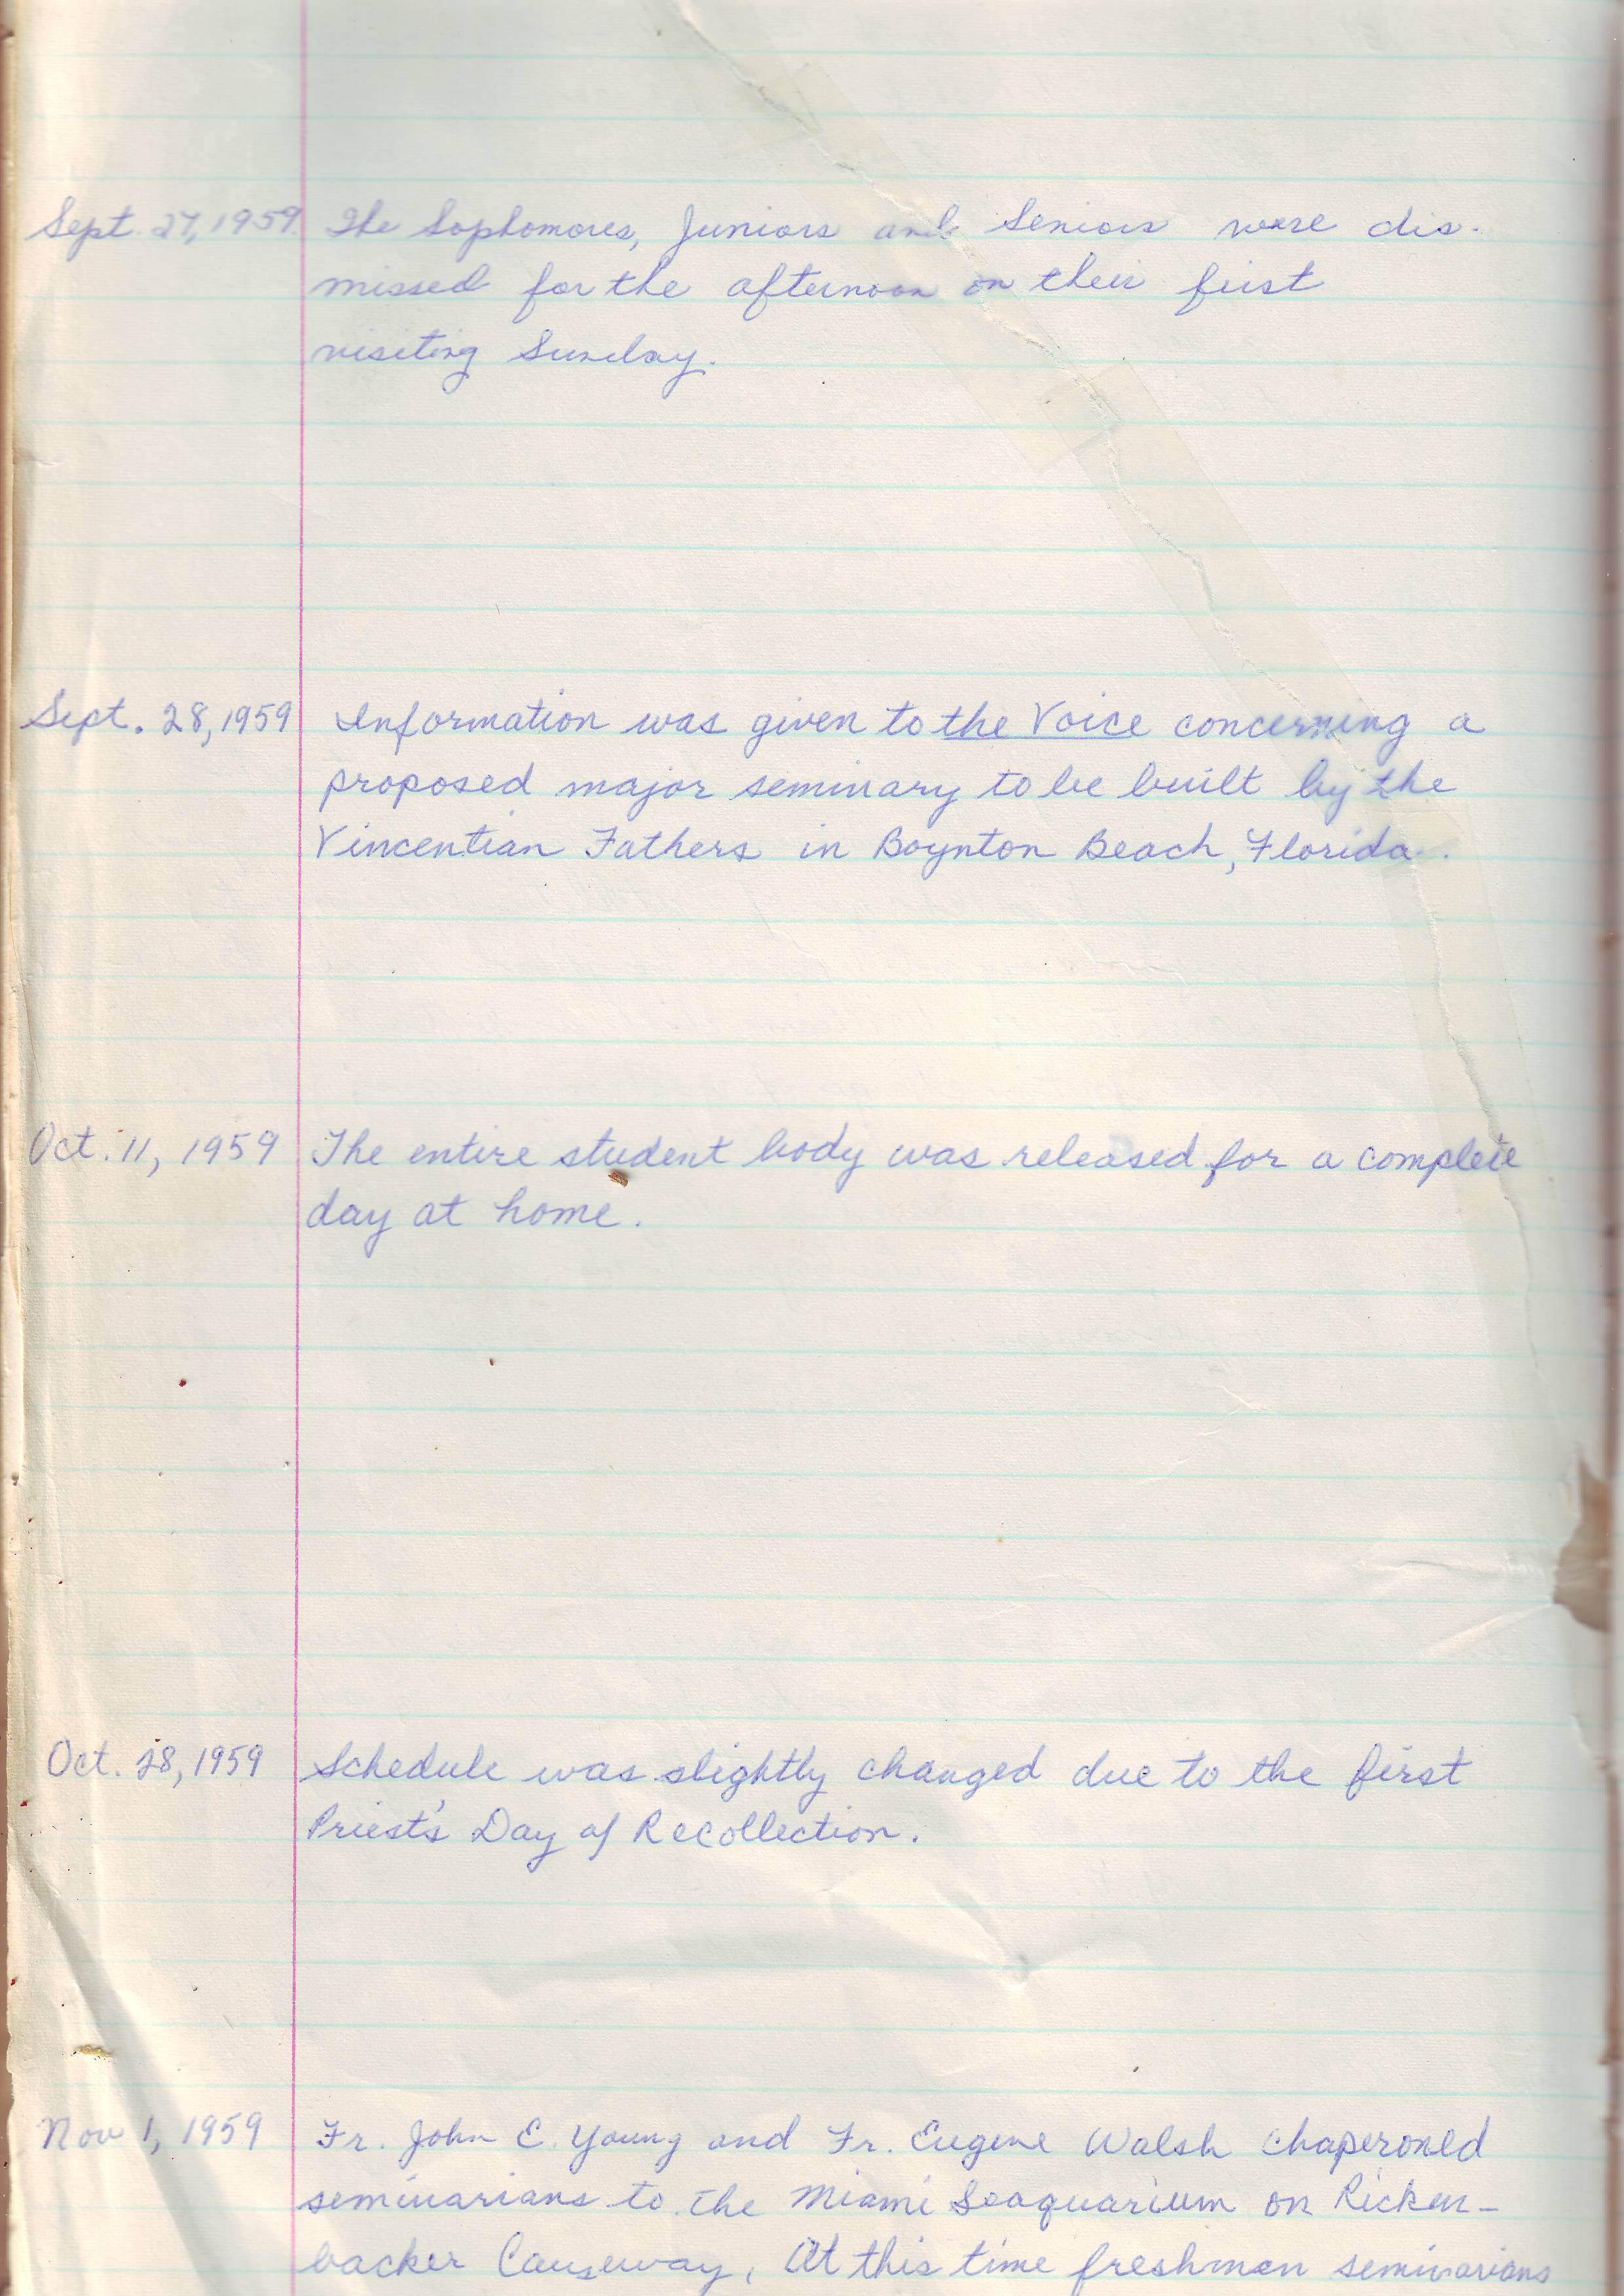 Sept. 27, 1959 The Sophomores, Juniors and Seniors were dis-
missed for the afternoon on their first
visiting Sunday.
Sept. 28, 1959 Information was given to the Voice concerning a
proposed major seminary to be built by the
Vincentian Fathers in Boynton Beach, Florida.
Oct. 11, 1959 The entire student body was released for a complete
day at home.
Oct. 28, 1959 Schedule was slightly changed due to the first
Priest's Day of Recollection.
Nov 1, 1959 Fr. John E. Young and Fr. Eugene Walsh chaperoned
seminarians to the Miami Seaquarium on Ricken-
backer Causeway. At this time freshman seminarians